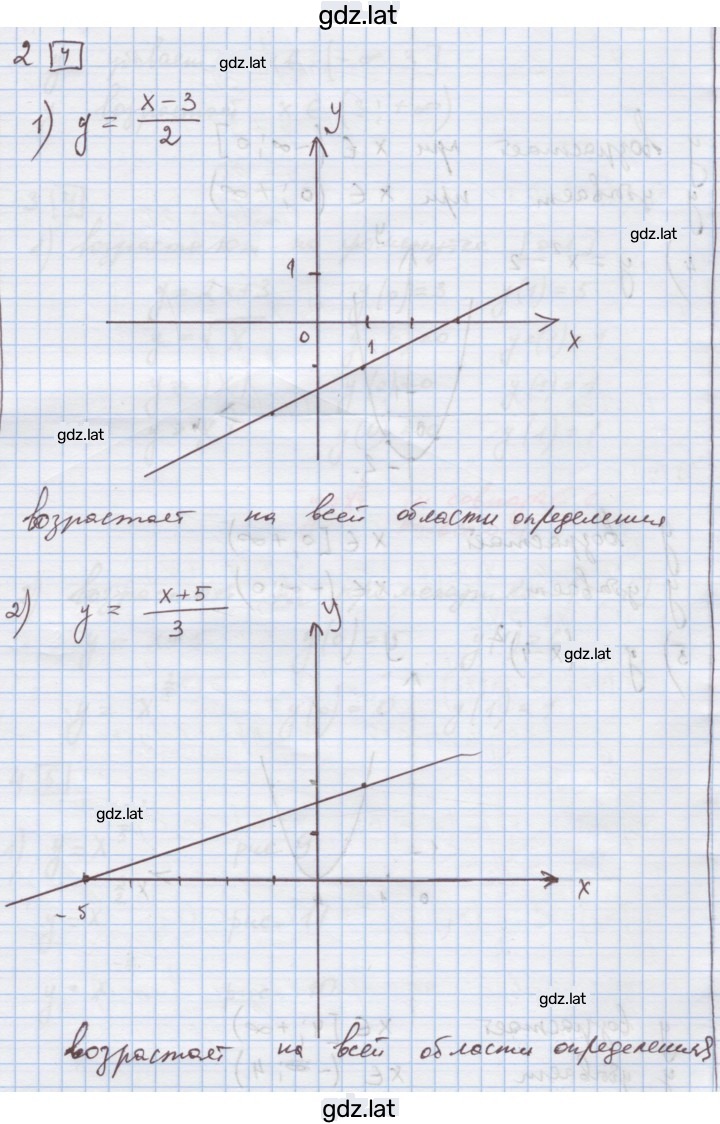 gdz.lat
2 4
gdz.lat
1) y = (x-3)/2
y
gdz.lat
1
0
1
x
gdz.lat
возрастает на всей области определения
2) y = (x+5)/3
y
gdz.lat
gdz.lat
-5
x
gdz.lat
возрастает на всей области определения
gdz.lat